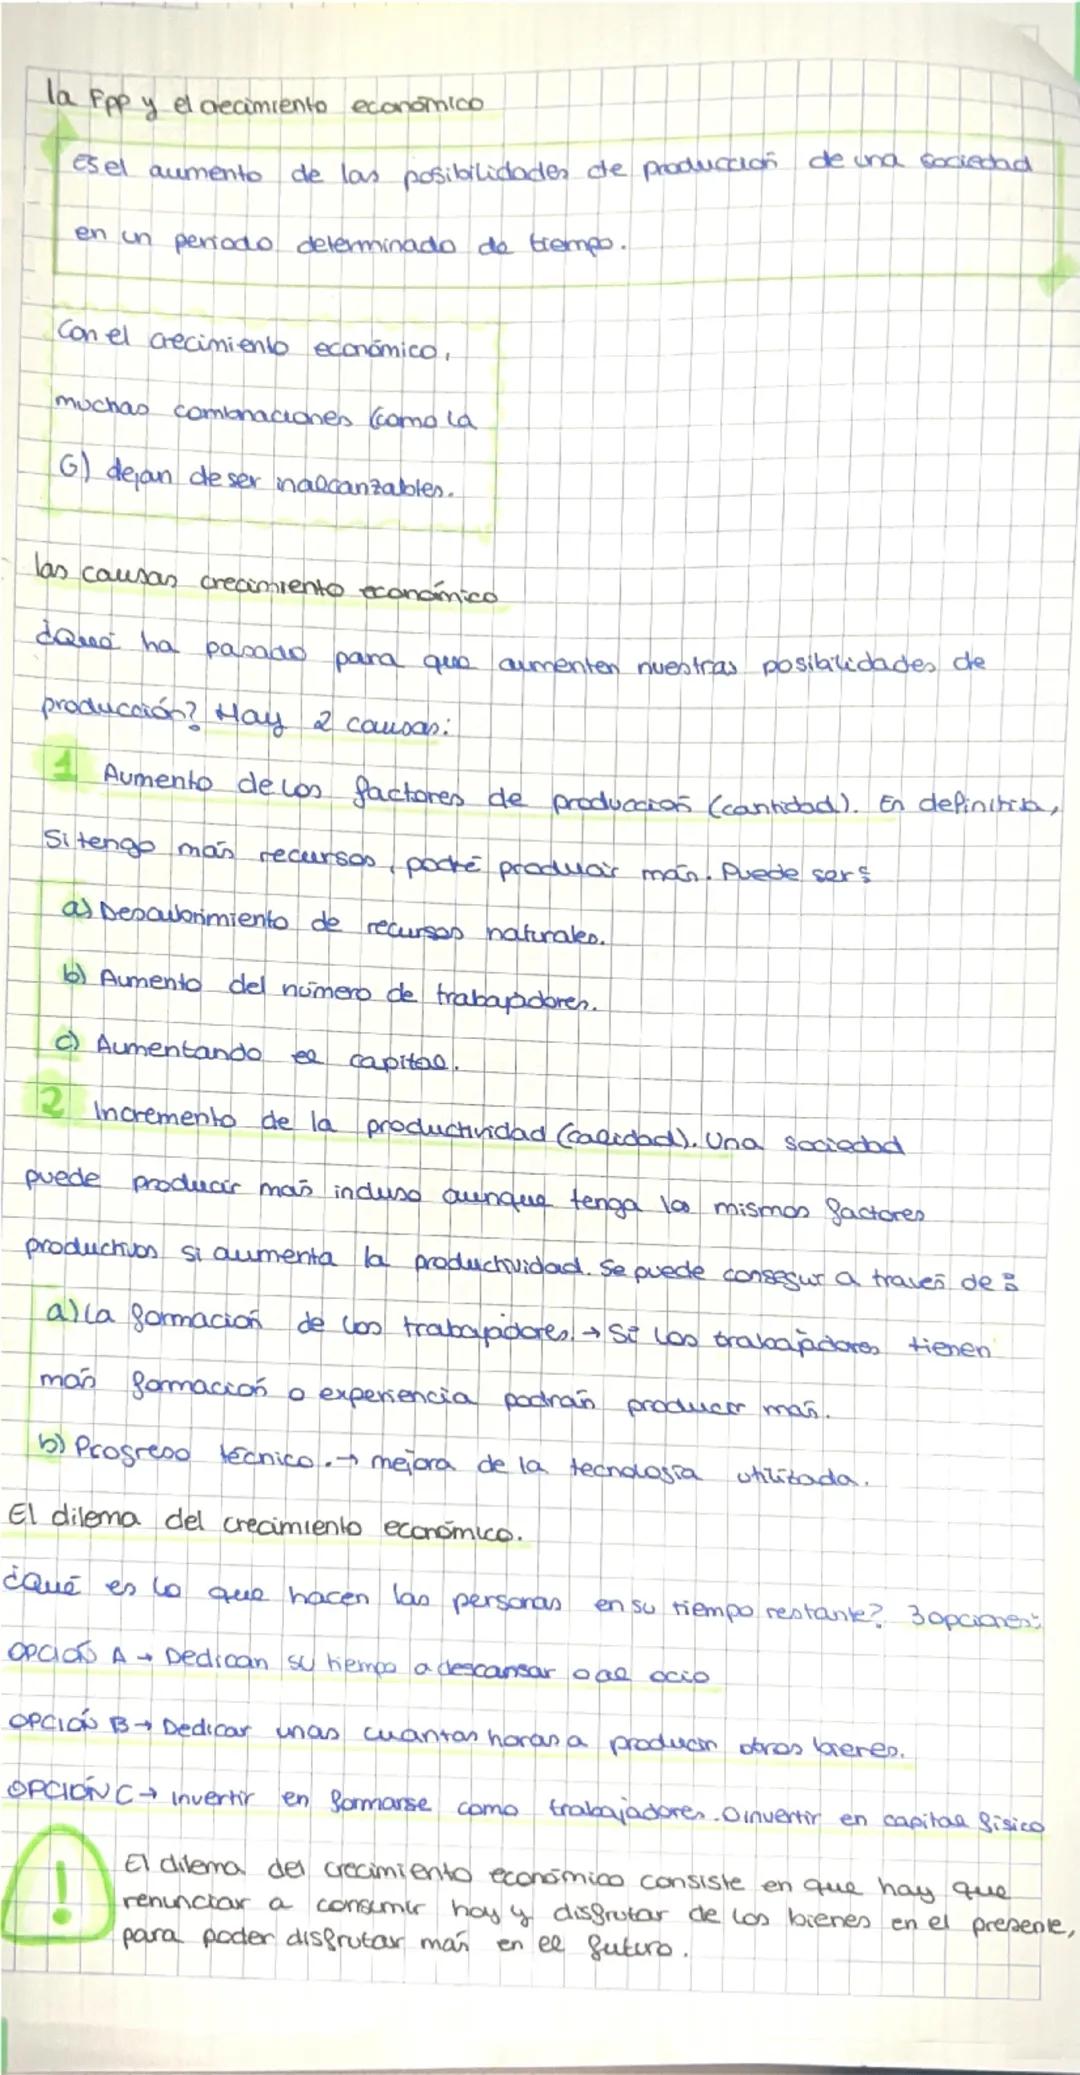 la FPP y el crecimiento económico
Es el aumento de las posibilidades de producción de una sociedad
en un periodo determinado de tiempo.
Con el crecimiento económico,
muchas combinaciones (como la
G) dejan de ser inalcanzables.
las causas crecimiento económico
¿Qué ha pasado para que aumenten nuestras posibilidades de
producción? Hay 2 causas:
1 Aumento de los factores de producción (cantidad). En definitiva,
Si tengo más recursos, podré producir más. Puede ser:
a) Descubrimiento de recursos naturales.
b) Aumento del número de trabajadores.
c) Aumentando el capital.
2 Incremento de la productividad (calidad). Una sociedad
puede producir más incluso aunque tenga los mismos factores
productivos si aumenta la productividad. Se puede conseguir a través de:
a) La formación de los trabajadores. → Si los trabajadores tienen
más formación o experiencia podrán producir más.
b) Progreso técnico. → mejora de la tecnología utilizada.
El dilema del crecimiento económico.
¿Qué es lo que hacen las personas en su tiempo restante? 3 opciones:
OPCIÓN A → Dedican su tiempo a descansar o al ocio
OPCIÓN B → Dedicar unas cuantas horas a producir otros bienes.
OPCIÓN C → invertir en formarse como trabajadores. O invertir en capital físico
!
El dilema del crecimiento económico consiste en que hay que
renunciar a consumir hoy y disfrutar de los bienes en el presente,
para poder disfrutar más en el futuro.